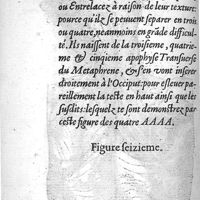 ou Entrelacez à raison de leur texture:
pource qu'ilz se peuuent separer en trois
ou quatre, neanmoins en grãde difficul
té. Ils naissent de la troisieme, quatrie-
me & cinquieme apophyse Transuerse
du Metaphrene, & s'en vont inserer
droitement à l'Occiput: pour esleuer pa
reillement la teste en haut ainsi que les
susdits: lesquelz te sont demonstrez par
ceste figure des quatre AAAA.
Figure seizieme.